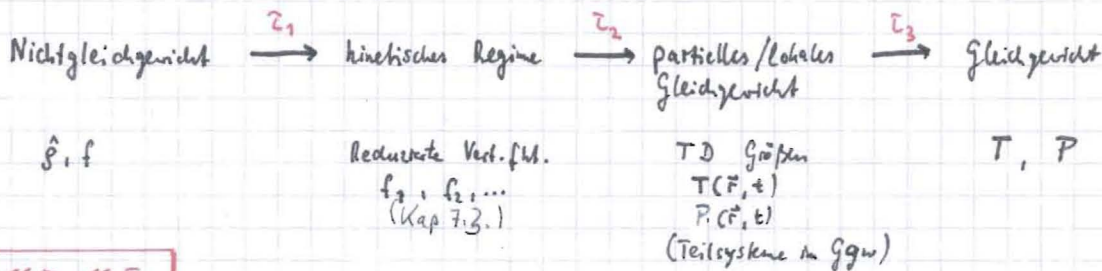 Nichtgleichgewicht → τ₁ kinetisches Regime → τ₂ partielles/lokales Gleichgewicht → τ₃ Gleichgewicht
ρ̂, f
Reduzierte Vert. fkt.
f₁, f₂, ...
(Kap 7.3.)
TD Größen
T(r⃗, t)
P(r⃗, t)
(Teilsysteme in Ggw)
T, P